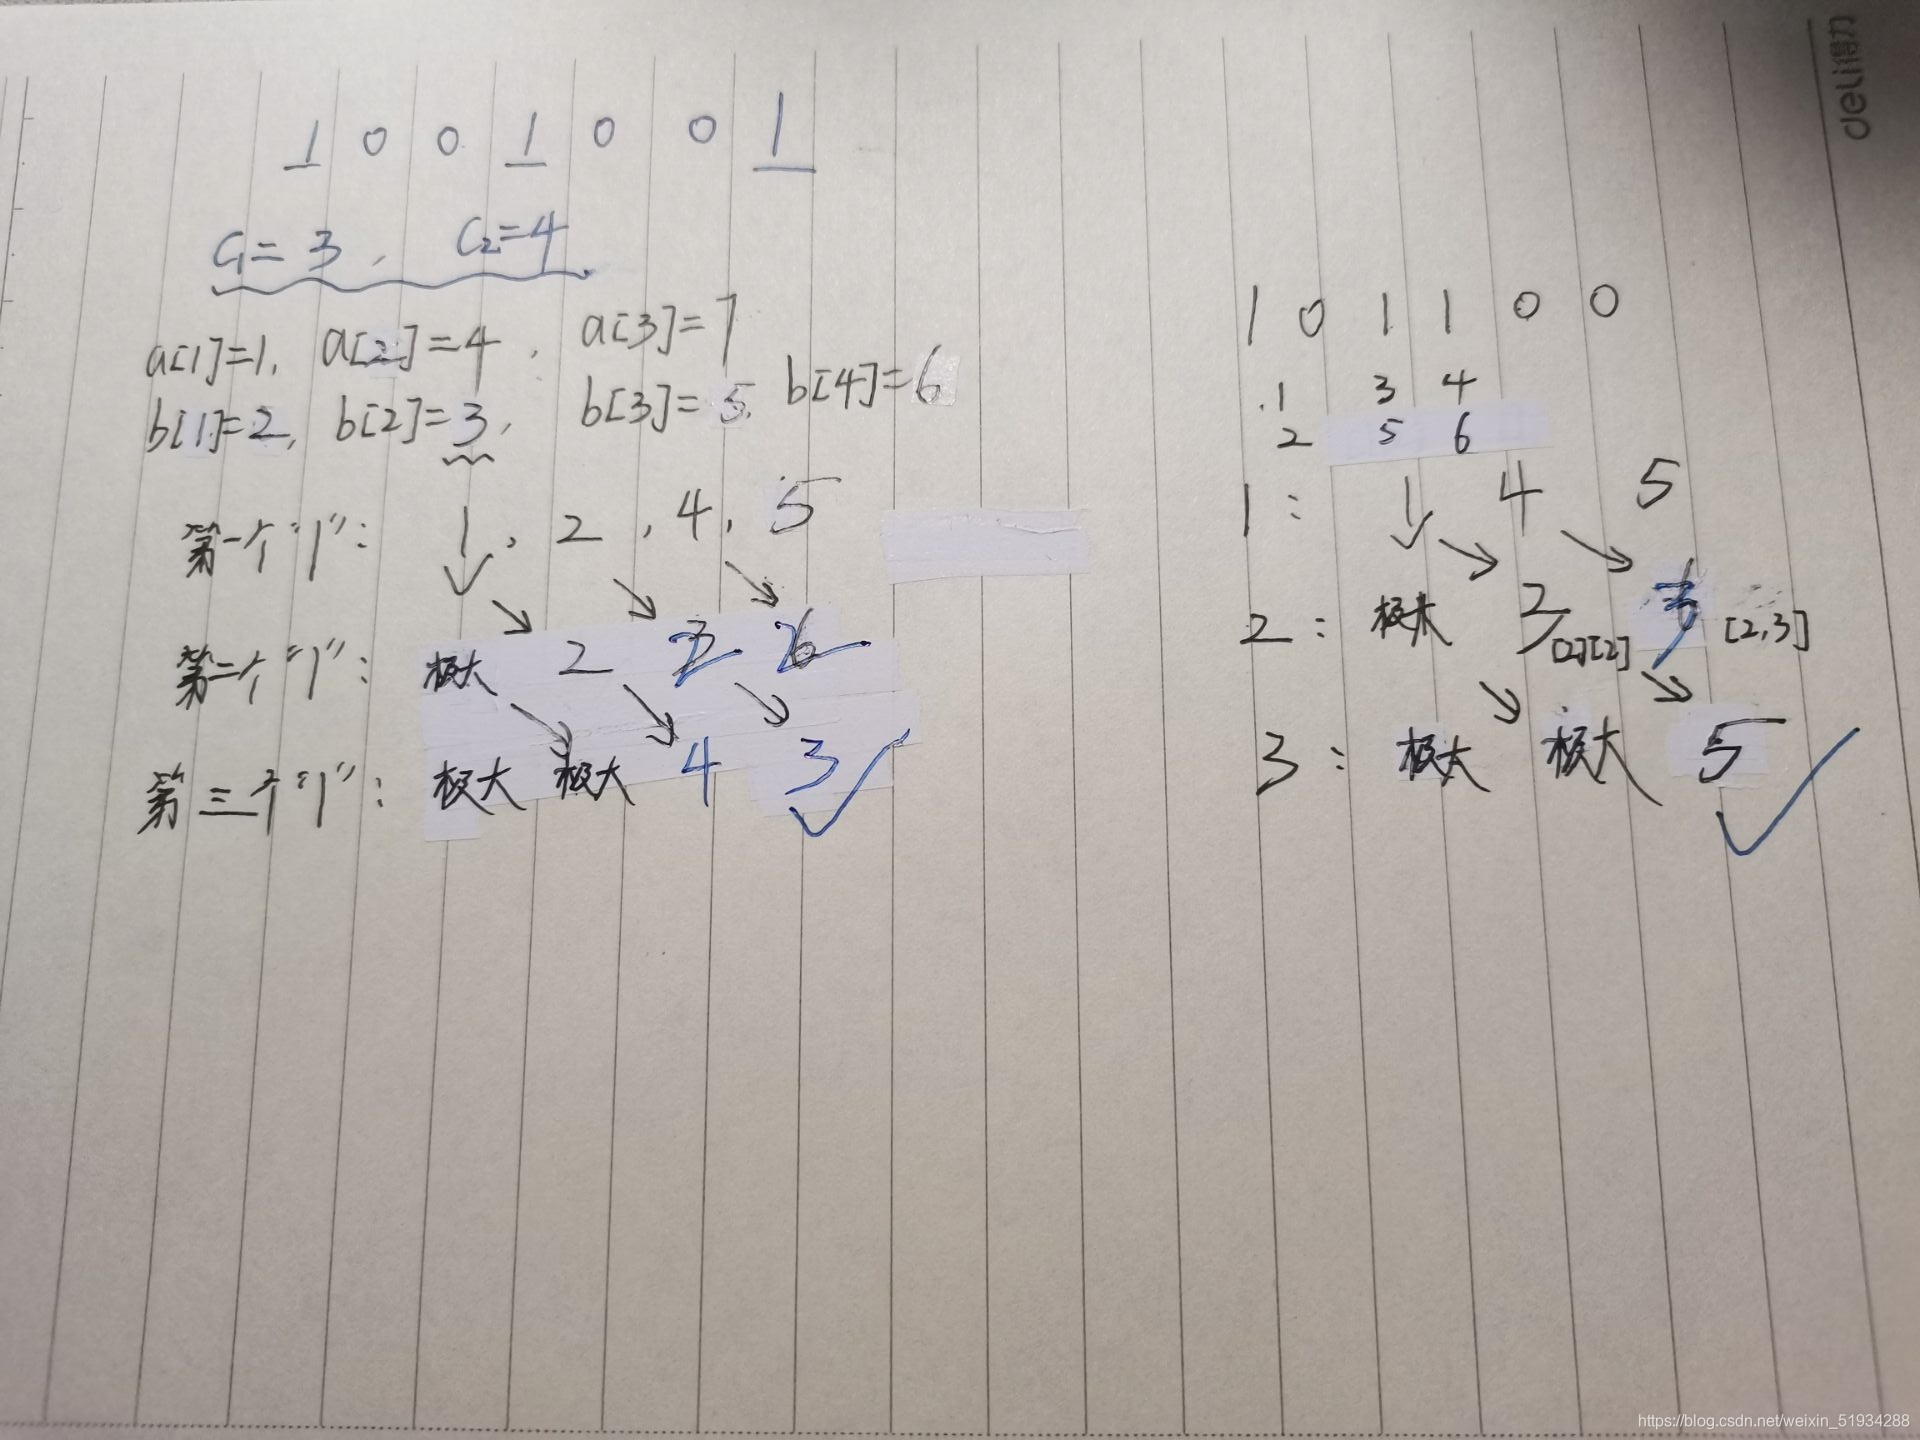 1 0 0 1 0 0 1
C1=3, C2=4
a[1]=1, a[2]=4, a[3]=7
b[1]=2, b[2]=3, b[3]=5, b[4]=6
第一个"1": 1, 2, 4, 5
第二个"1": 极大 2
第三个"1": 极大 极大 4 3
1 0 1 1 0 0
1 3 4
2 5 6
1: 1 4 5
2: 极大 2 [2][2] [2,3]
3: 极大 极大 5
deli得力
https://blog.csdn.net/weixin_51934288